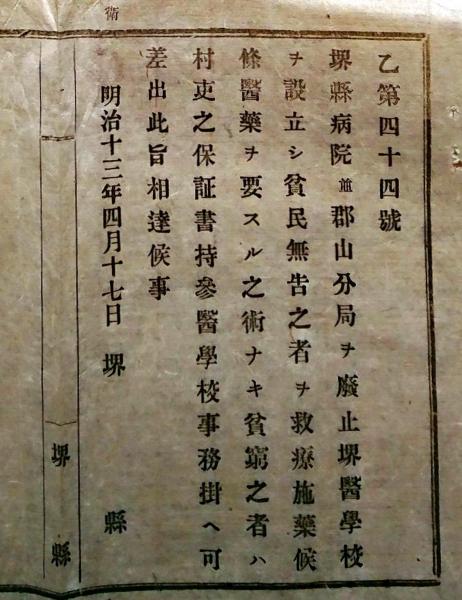 乙第四十四號
堺縣病院並郡山分局ヲ廢止堺醫學校
ヲ設立シ貧民無告之者ヲ救療施藥候
條醫藥ヲ要スル之術ナキ貧窮之者ハ
村吏之保証書持參醫學校事務掛ヘ可
差出此旨相達候事
明治十三年四月十七日 堺縣
堺縣
衛